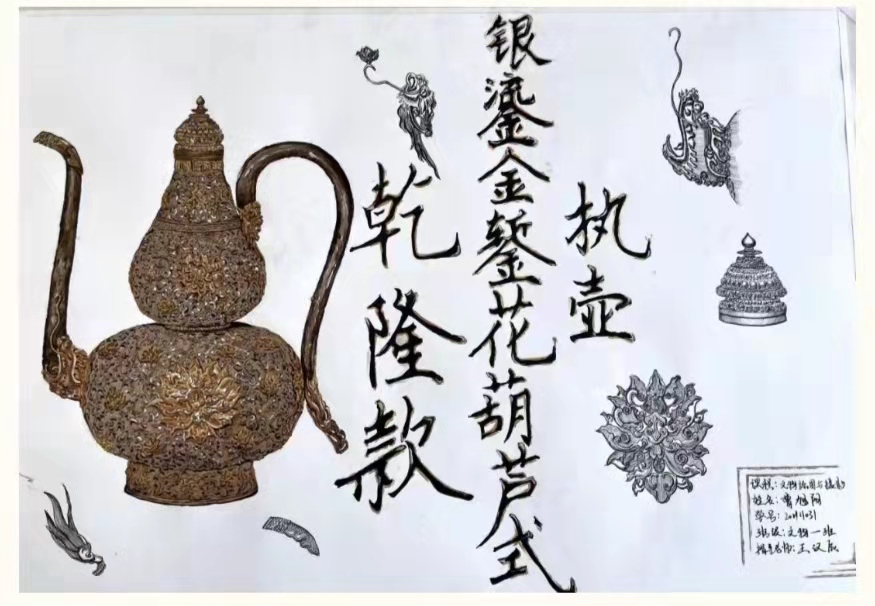 执壶
银鎏金錾花葫芦式
乾隆款
课程:文物绘图与
姓名:曹旭阳
学号:
班级:文物一班
指导老师:王汉辰